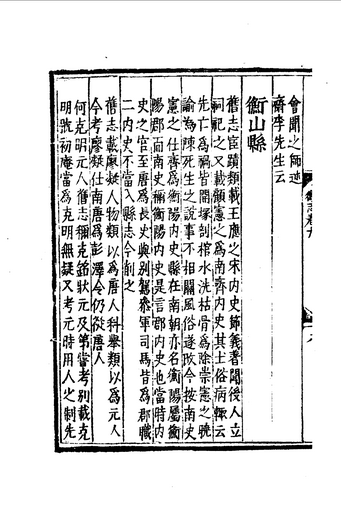 會聞之師述
齋李先生云
衡山縣
舊志宦蹟類載王應之宋内史節義著聞後人立
祠祀之又載顧憲之為南齊内史其土俗病輒云
先亡為禍皆開塚剖棺水洗枯骨為除祟憲之曉
諭為陳死生之說事不相關風俗遂改今按南史
憲之仕齊為衡陽内史縣在南朝亦名衡陽屬衡
陽郡而南史稱衡陽内史是言郡内史也當時内
史之官至唐為長史與别駕叅軍司馬皆為郡職
二内史不當入縣志今削之
舊志載廖凝人物類以為唐人科舉類以為元人
今考廖凝仕南唐為彭澤令仍從唐人
何克明元人舊志稱克銘狀元及第嘗考别載克
明號初庵當為克明無疑又考元時用人之制先